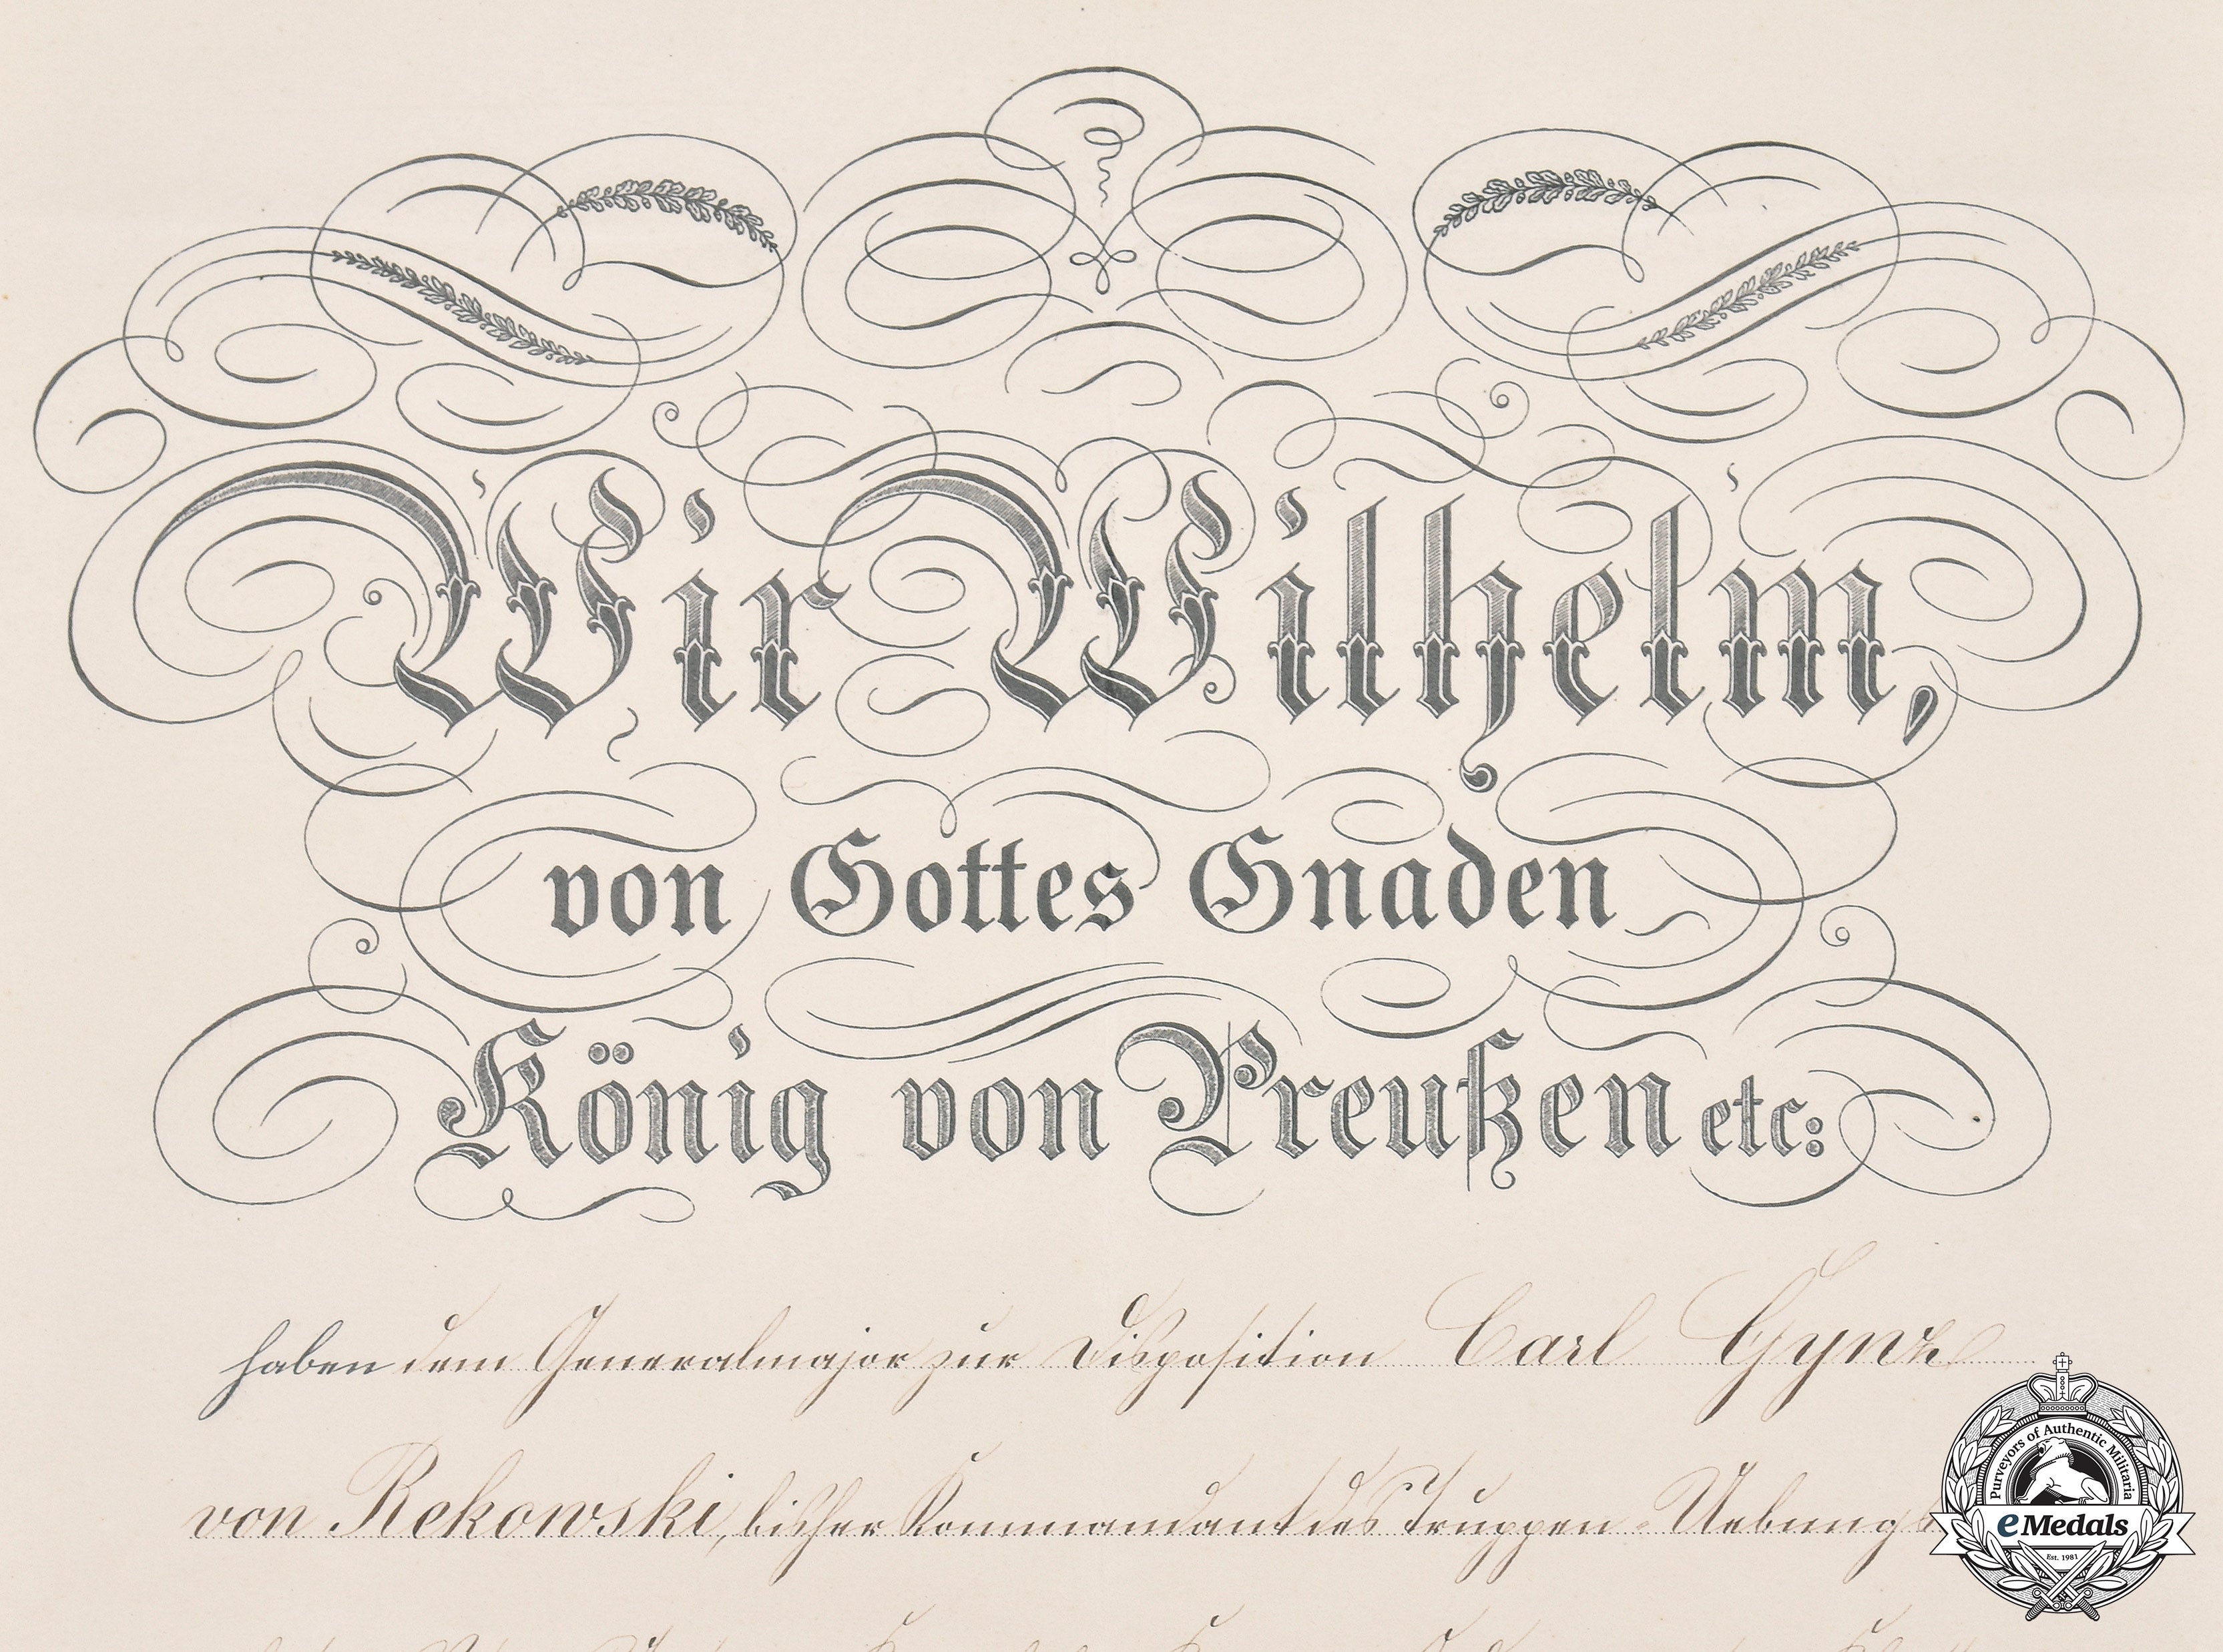 Wir Wilhelm,
von Gottes Gnaden
König von Preußen etc:
haben dem Generalmajor zur Disposition Carl Gynz
von Rekowski, bisher Kommandant des Truppen-Uebungs
Purveyors of Authentic Militaria
eMedals
Est. 1981